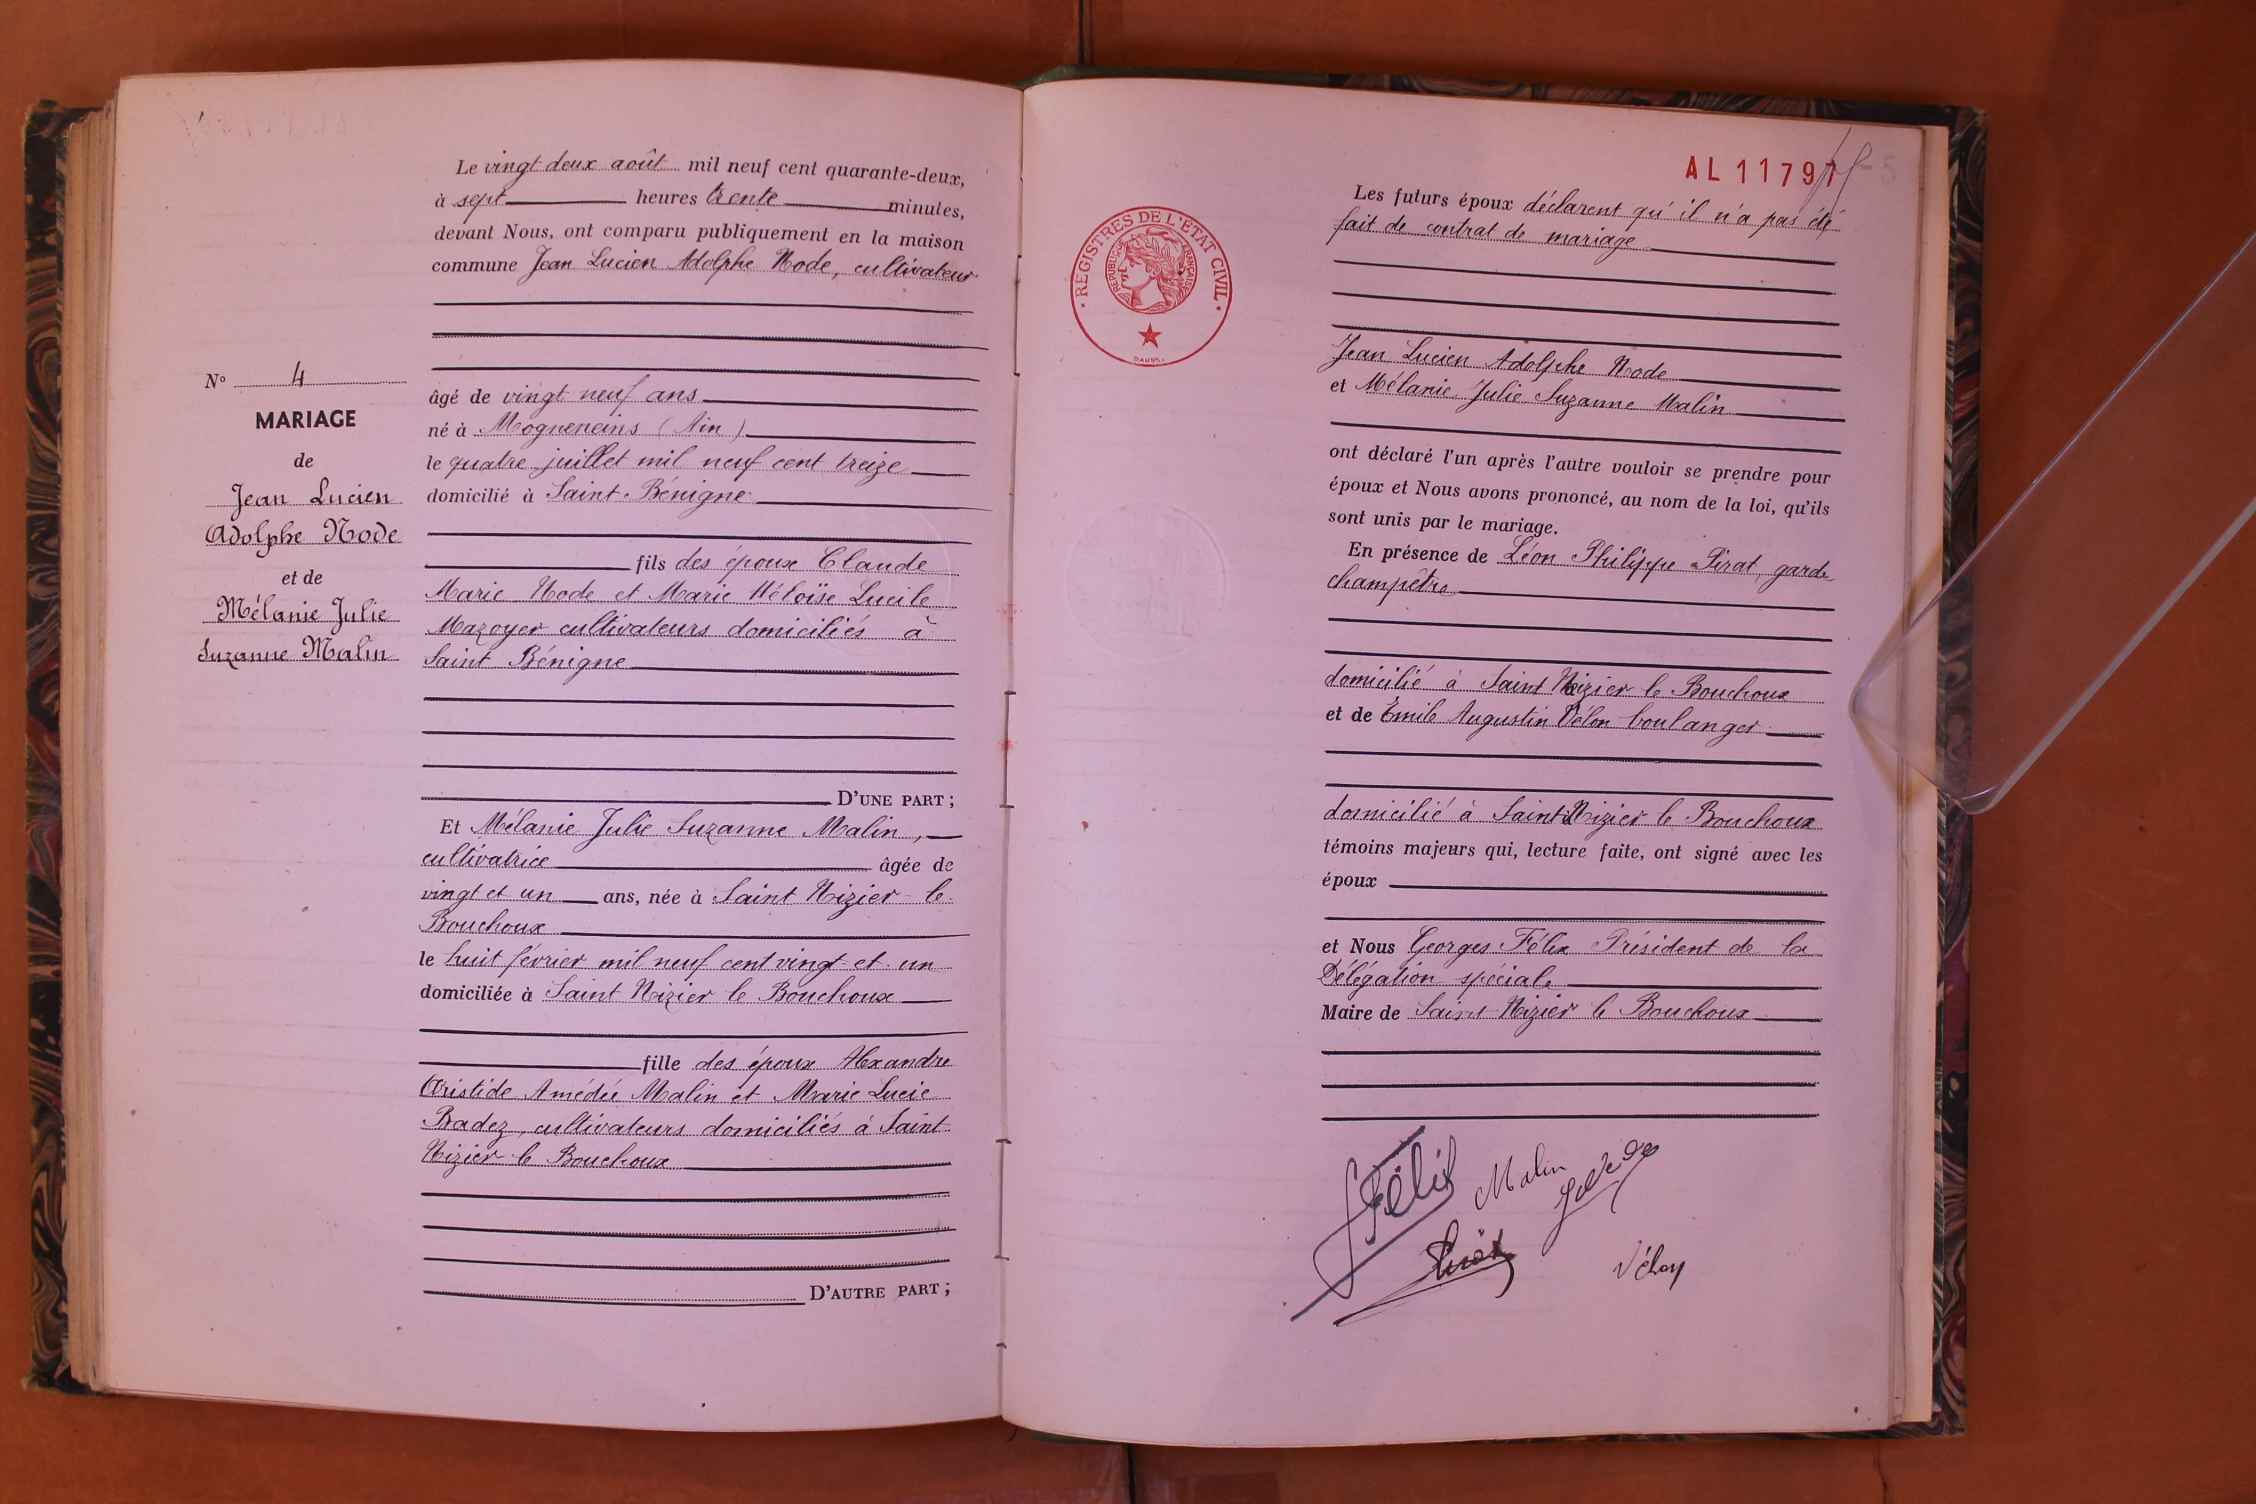 Le vingt deux août mil neuf cent quarante-deux,
à sept heures trente minutes,
devant Nous, ont comparu publiquement en la maison
commune Jean Lucien Adolphe Node, cultivateur
N° 4
MARIAGE
de
Jean Lucien
Adolphe Node
et de
Mélanie Julie
Suzanne Malin
âgé de vingt neuf ans
né à Mogneneins (Ain)
le quatre juillet mil neuf cent treize
domicilié à Saint-Bénigne
fils des époux Claude
Marie Node et Marie Héloïse Lucile
Mazoyer cultivateurs domiciliés à
Saint Bénigne
D'UNE PART ;
Et Mélanie Julie Suzanne Malin,
cultivatrice âgée de
vingt et un ans, née à Saint Nizier-le-
Bouchoux
le huit février mil neuf cent vingt et un
domiciliée à Saint Nizier le Bouchoux
fille des époux Alexandre
Aristide Amédée Malin et Marie Lucie
Badez, cultivateurs domiciliés à Saint
Nizier le Bouchoux
D'AUTRE PART ;
AL 11797
REGISTRES DE L'ÉTAT CIVIL
RÉPUBLIQUE FRANÇAISE
Les futurs époux déclarent qu'il n'a pas été
fait de contrat de mariage
Jean Lucien Adolphe Node
et Mélanie Julie Suzanne Malin
ont déclaré l'un après l'autre vouloir se prendre pour
époux et Nous avons prononcé, au nom de la loi, qu'ils
sont unis par le mariage.
En présence de Léon Philippe Pirat, garde
champêtre
domicilié à Saint Nizier le Bouchoux
et de Émile Augustin Vélon boulanger
domicilié à Saint Nizier le Bouchoux
témoins majeurs qui, lecture faite, ont signé avec les
époux
et Nous Georges Félix Président de la
Délégation spéciale
Maire de Saint-Nizier le Bouchoux
Félix
Malin
Vélon